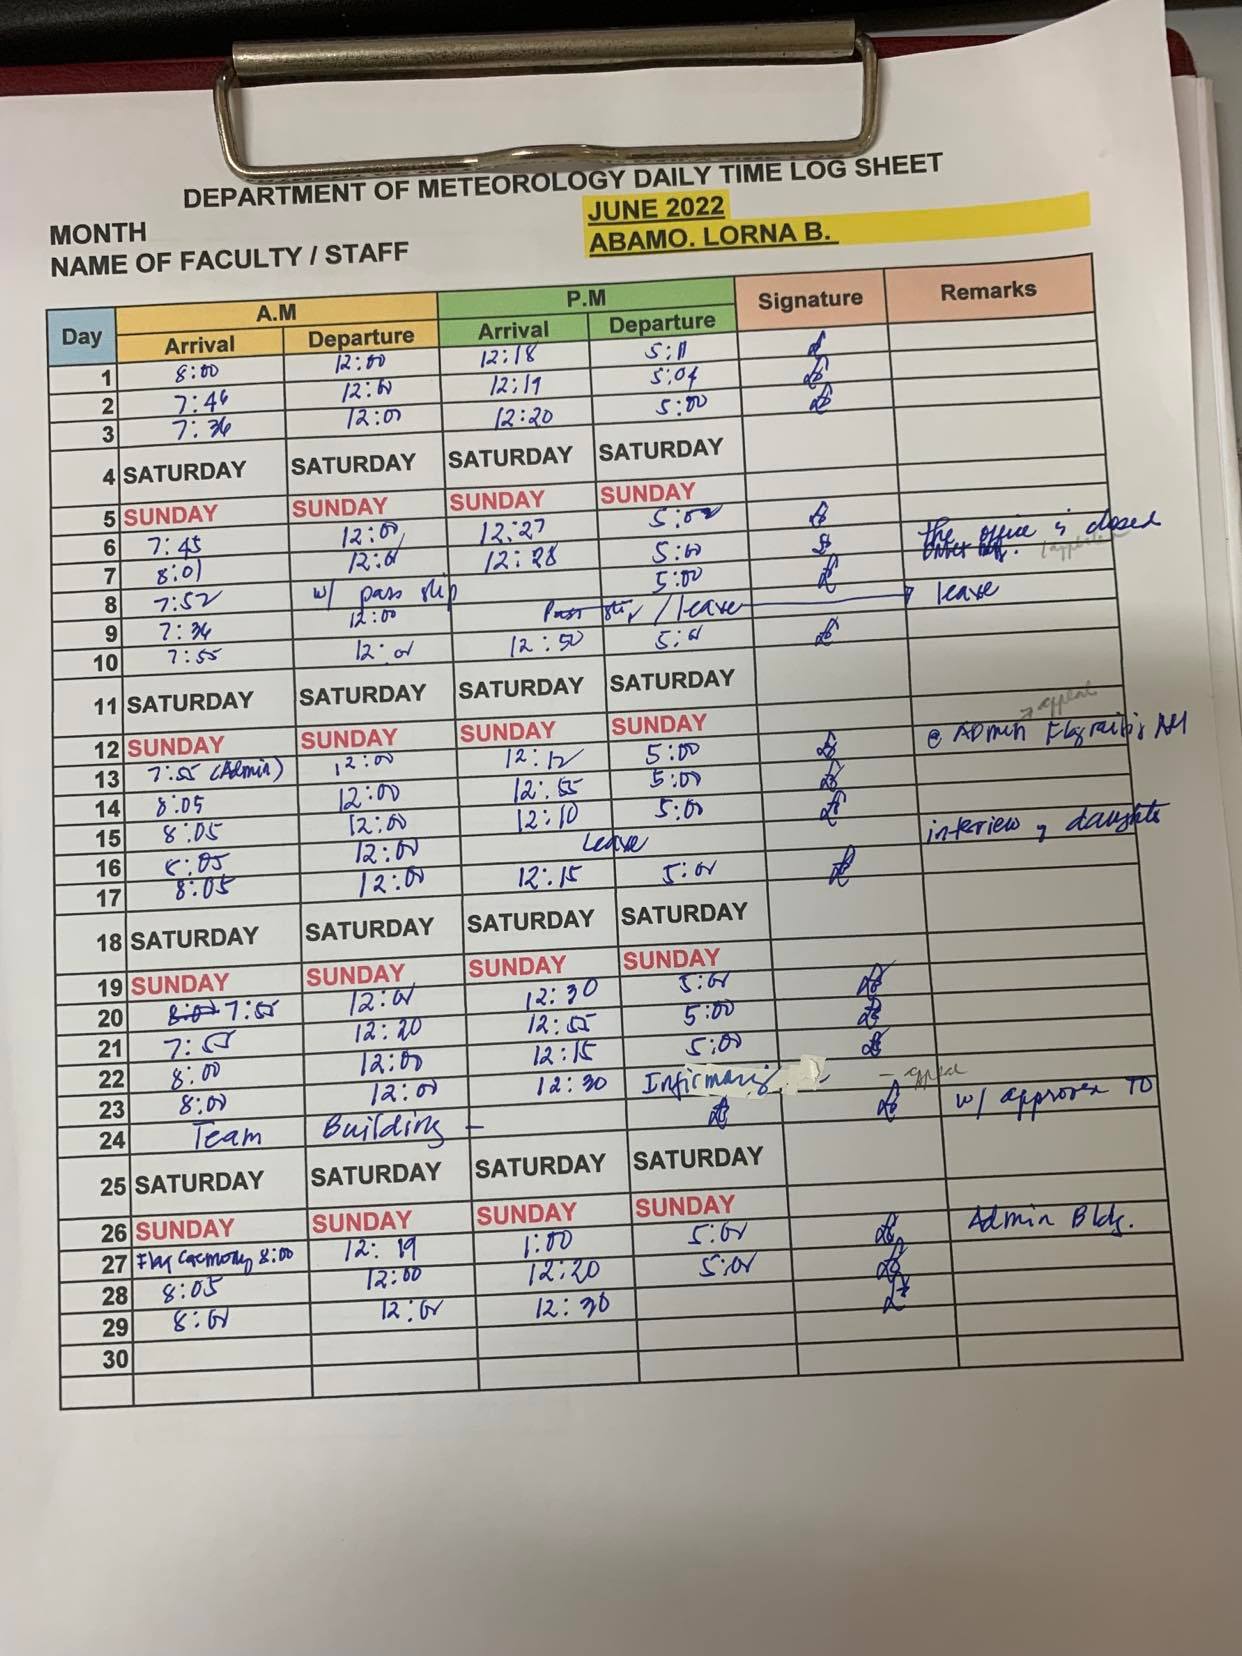 DEPARTMENT OF METEOROLOGY DAILY TIME LOG SHEET
MONTH JUNE 2022
NAME OF FACULTY / STAFF ABAMO. LORNA B.
Day A.M P.M Signature Remarks
Arrival Departure Arrival Departure
1 8:00 12:00 12:18 5:11
2 7:46 12:00 12:19 5:04
3 7:36 12:00 12:20 5:00
4 SATURDAY SATURDAY SATURDAY SATURDAY
5 SUNDAY SUNDAY SUNDAY SUNDAY
6 7:45 12:00 12:27 5:00
7 8:01 12:01 12:28 5:00 the office is closed
8 7:52 w/ pass slip 5:00
9 7:36 12:00 Pass slip / leave leave
10 7:55 12:01 12:50 5:01
11 SATURDAY SATURDAY SATURDAY SATURDAY
12 SUNDAY SUNDAY SUNDAY SUNDAY appeal
13 7:55 (Admin) 12:00 12:12 5:00 @ ADmin Flag raising AM
14 8:05 12:00 12:55 5:00
15 8:05 12:00 12:10 5:00
16 8:05 12:00 Leave interview of daughter
17 8:05 12:00 12:15 5:01
18 SATURDAY SATURDAY SATURDAY SATURDAY
19 SUNDAY SUNDAY SUNDAY SUNDAY
20 8:00 7:55 12:01 12:30 5:01
21 7:55 12:20 12:55 5:00
22 8:00 12:00 12:15 5:00
23 8:00 12:00 12:30 Infirmary - appeal
24 Team Building - w/ approved TO
25 SATURDAY SATURDAY SATURDAY SATURDAY
26 SUNDAY SUNDAY SUNDAY SUNDAY
27 Flag Ceremony 8:00 12:19 1:00 5:01 Admin Bldg.
28 8:05 12:00 12:20 5:01
29 8:01 12:01 12:30
30